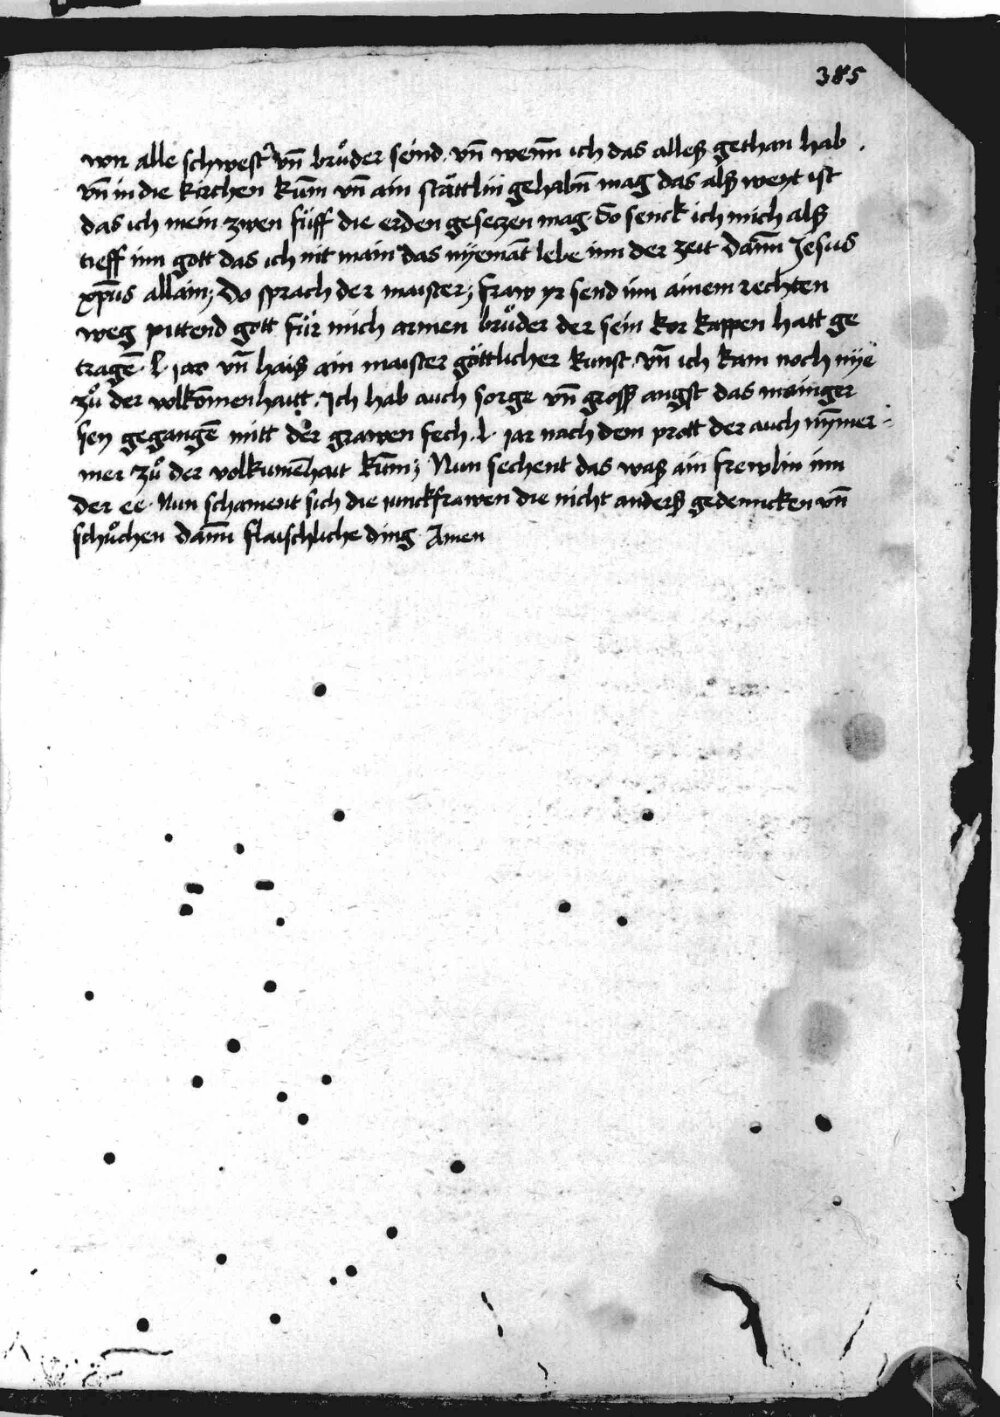 385
wir alle schwest͛ vn̄ brůder seind. vn̄ wenn̄ ich das alleß gethan hab.
vn̄ in die kirchen kum̄ vn̄ ain stättlin gehabn̄ mag das alß weyt ist
das ich mein zwen füff die erden gesetzen mag So senck ich mich alß
tieff inn gott das ich nit main das nyemāt lebe inn der zeit dann̄ Jesus
xp̄us allain; Do sprach der maister; fraw yr send inn ainem rechten
weg pittend gott für mich armen brůder der sein kor kappen hatt ge
tragē .l. jar vn̄ haiß ain maister göttlicher kunst. vn̄ ich kam noch nÿe
zů der volkōmenhaitt. Ich hab auch sorge vn̄ groß angst das mainger
sey gegangē mitt der grawen sech .l. jar nach dem prott der auch nÿm̄er-
mer zů der volkumēhait kum̄; Nun sechent das waß ain frewlin inn
der ee. Nun schament sich die junckfrawen die nicht anderß gedenncken vn̄
schůchen dann̄ flaischliche ding Amen